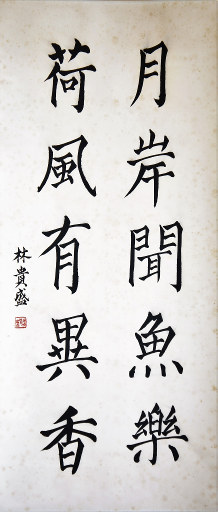 月岸聞魚樂
荷風有異香
林貴盛